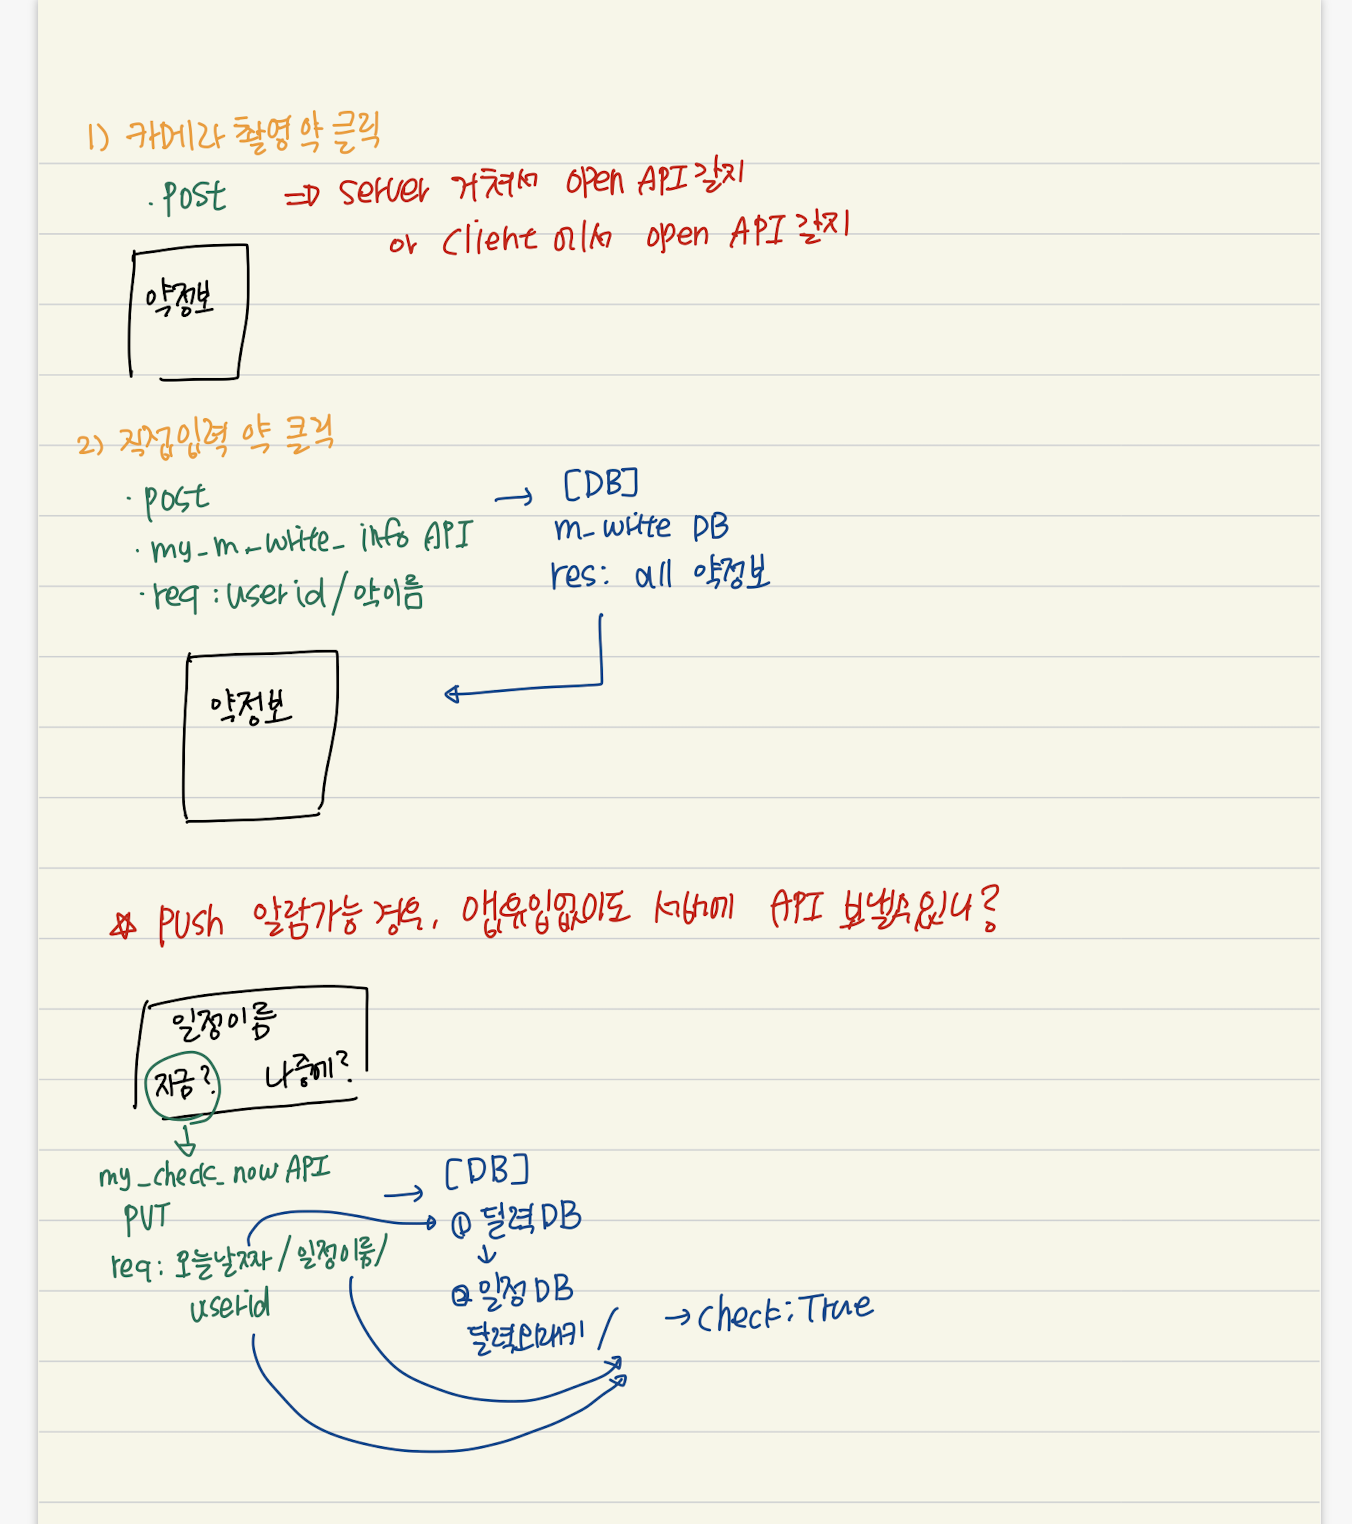 1) 카메라 촬영 약 클릭
· post ⇒ server 거쳐서 open API 갈지
or client 에서 open API 갈지
약정보
2) 직접입력 약 클릭
· post → [DB]
· my_m_write_info API m_write DB
· req : userid / 약이름 res : all 약정보
약정보
☆ push 알람가능 경우, 앱유입없이도 서버에 API 보낼수있나?
일정이름
지금? 나중에?
my_check_now API → [DB]
PUT ① 달력 DB
req : 오늘날짜 / 일정이름 / ② 일정 DB
userid 달력외래키 / → check : True